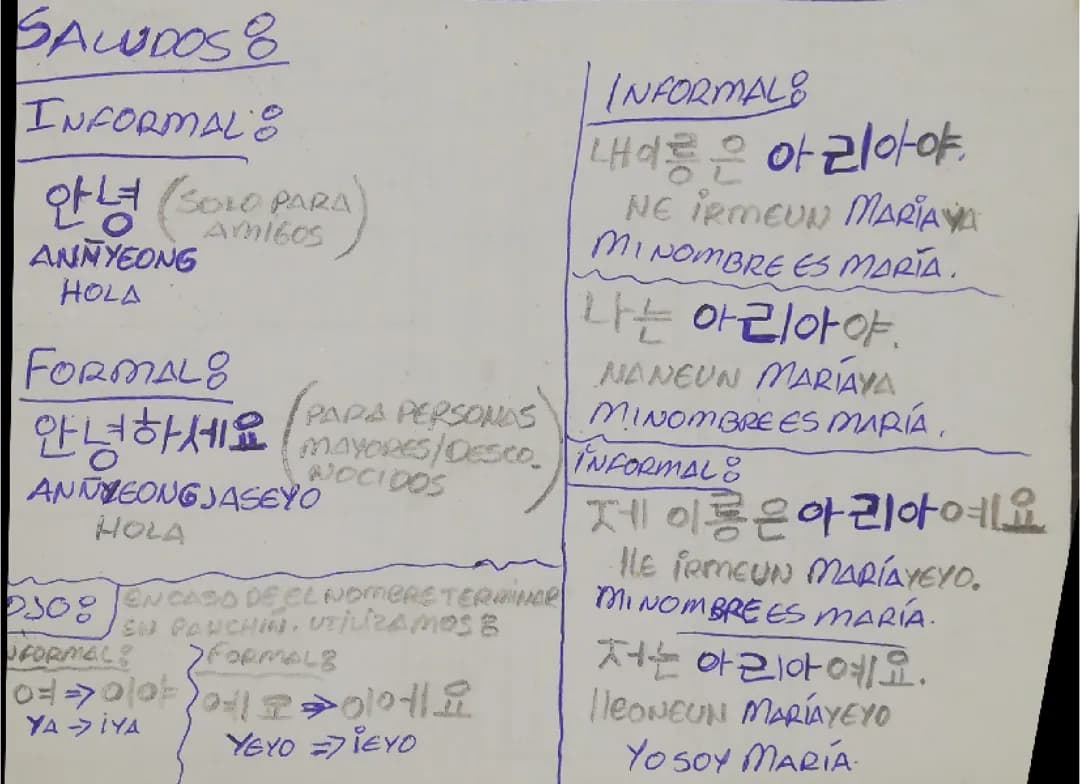 SALUDOS:
INFORMAL:
안녕 (SOLO PARA
AMIGOS)
ANÑYEONG
HOLA
FORMAL:
안녕하세요 (PARA PERSONAS
MAYORES/DESCO-
NOCIDOS)
ANÑYEONGJASEYO
HOLA
OJO: EN CASO DE EL NOMBRE TERMINAR
EN PAUCHIN. UTILIZAMOS:
INFORMAL:
여 => 이야
YA -> iYA
FORMAL:
예요 => 이에요
YEYO => iEYO
INFORMAL:
내이릉은 아리아야.
NE iRMEUN MARÍAYA
MI NOMBRE ES MARÍA.
나는 아리아야.
NANEUN MARÍAYA
MI NOMBRE ES MARÍA.
INFORMAL:
제 이릉은 아리아예요
llE iRMEUN MARÍAYEYO.
MI NOMBRE ES MARÍA.
저는 아리아예요.
llEONEUN MARÍAYEYO
YO SOY MARÍA.